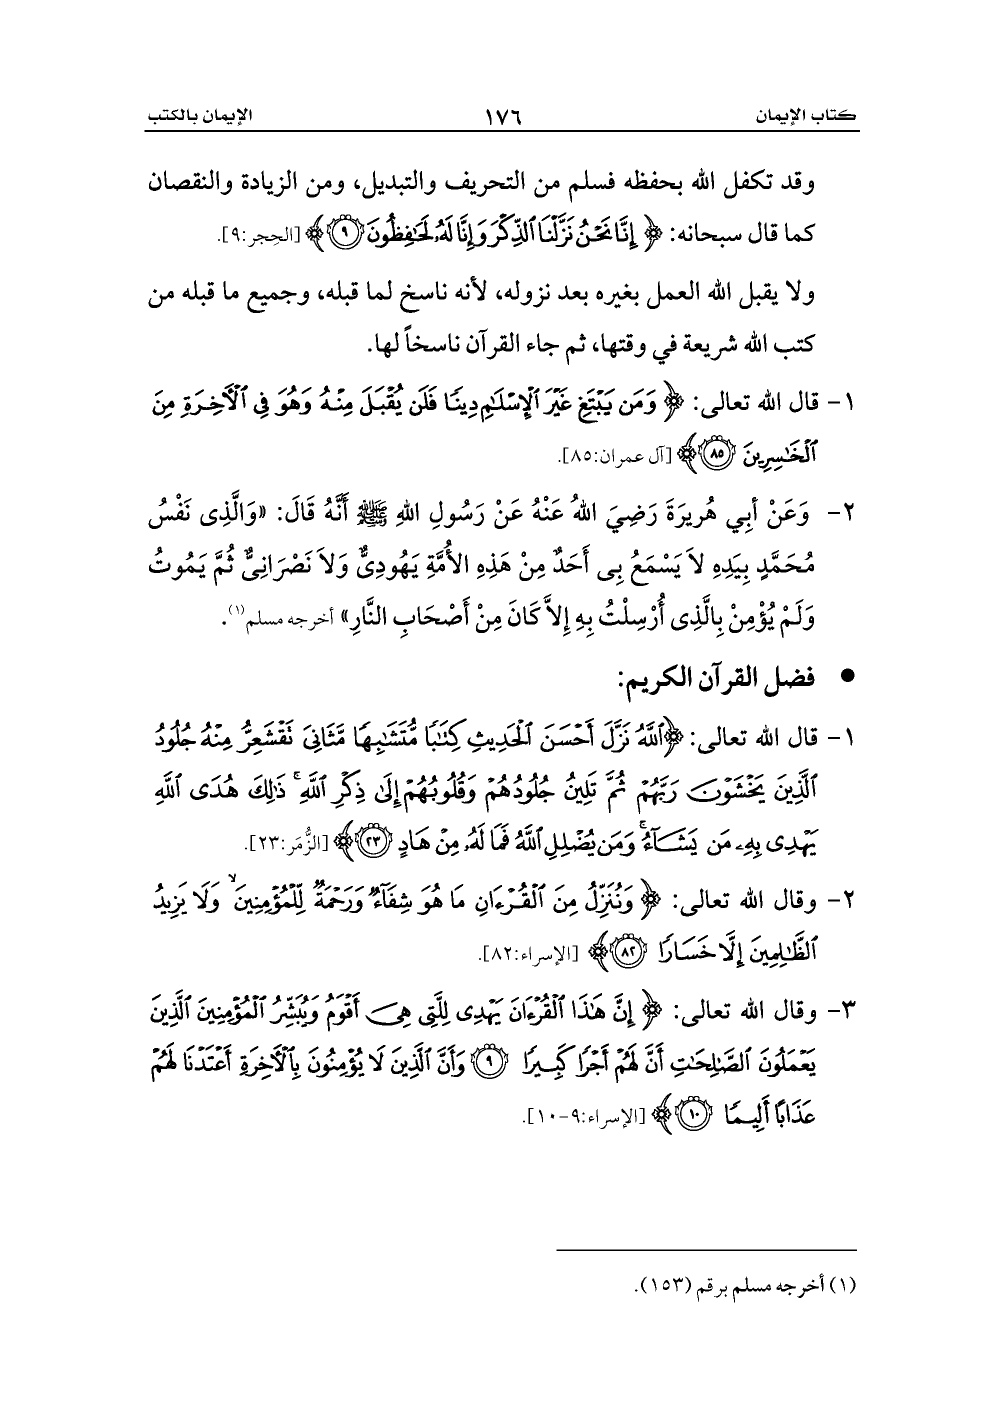 كتاب الإيمان ١٧٦ الإيمان بالكتب
وقد تكفل الله بحفظه فسلم من التحريف والتبديل، ومن الزيادة والنقصان
كما قال سبحانه: ﴿ إِنَّا نَحْنُ نَزَّلْنَا ٱلذِّكْرَ وَإِنَّا لَهُۥ لَحَٰفِظُونَ ٩ ﴾ [الحِجر:٩].
ولا يقبل الله العمل بغيره بعد نزوله، لأنه ناسخ لما قبله، وجميع ما قبله من
كتب الله شريعة في وقتها، ثم جاء القرآن ناسخاً لها.
١- قال الله تعالى: ﴿ وَمَن يَبْتَغِ غَيْرَ ٱلْإِسْلَٰمِ دِينًا فَلَن يُقْبَلَ مِنْهُ وَهُوَ فِى ٱلْأَخِرَةِ مِنَ
ٱلْخَٰسِرِينَ ٨٥ ﴾ [آل عمران:٨٥].
٢- وَعَنْ أبِي هُريرَةَ رَضِيَ اللهُ عَنْهُ عَنْ رَسُولِ اللهِ ﷺ أَنَّهُ قَالَ: «وَالَّذِى نَفْسُ
مُحَمَّدٍ بِيَدِهِ لاَ يَسْمَعُ بِى أَحَدٌ مِنْ هَذِهِ الأُمَّةِ يَهُودِىٌّ وَلاَ نَصْرَانِىٌّ ثُمَّ يَمُوتُ
وَلَمْ يُؤْمِنْ بِالَّذِى أُرْسِلْتُ بِهِ إِلاَّ كَانَ مِنْ أَصْحَابِ النَّارِ» أخرجه مسلم(١).
● فضل القرآن الكريم:
١- قال الله تعالى: ﴿ٱللَّهُ نَزَّلَ أَحْسَنَ ٱلْحَدِيثِ كِتَٰبًا مُّتَشَٰبِهًا مَّثَانِىَ تَقْشَعِرُّ مِنْهُ جُلُودُ
ٱلَّذِينَ يَخْشَوْنَ رَبَّهُمْ ثُمَّ تَلِينُ جُلُودُهُمْ وَقُلُوبُهُمْ إِلَىٰ ذِكْرِ ٱللَّهِ ۚ ذَٰلِكَ هُدَى ٱللَّهِ
يَهْدِى بِهِۦ مَن يَشَآءُ ۚ وَمَن يُضْلِلِ ٱللَّهُ فَمَا لَهُۥ مِنْ هَادٍ ٢٣ ﴾ [الزُّمَر:٢٣].
٢- وقال الله تعالى: ﴿ وَنُنَزِّلُ مِنَ ٱلْقُرْءَانِ مَا هُوَ شِفَآءٌ وَرَحْمَةٌ لِّلْمُؤْمِنِينَ ۙ وَلَا يَزِيدُ
ٱلظَّٰلِمِينَ إِلَّا خَسَارًا ٨٢ ﴾ [الإسراء:٨٢].
٣- وقال الله تعالى: ﴿ إِنَّ هَٰذَا ٱلْقُرْءَانَ يَهْدِى لِلَّتِى هِىَ أَقْوَمُ وَيُبَشِّرُ ٱلْمُؤْمِنِينَ ٱلَّذِينَ
يَعْمَلُونَ ٱلصَّٰلِحَٰتِ أَنَّ لَهُمْ أَجْرًا كَبِيرًا ٩ وَأَنَّ ٱلَّذِينَ لَا يُؤْمِنُونَ بِٱلْأَخِرَةِ أَعْتَدْنَا لَهُمْ
عَذَابًا أَلِيمًا ١٠ ﴾ [الإسراء:٩-١٠].
(١) أخرجه مسلم برقم (١٥٣).